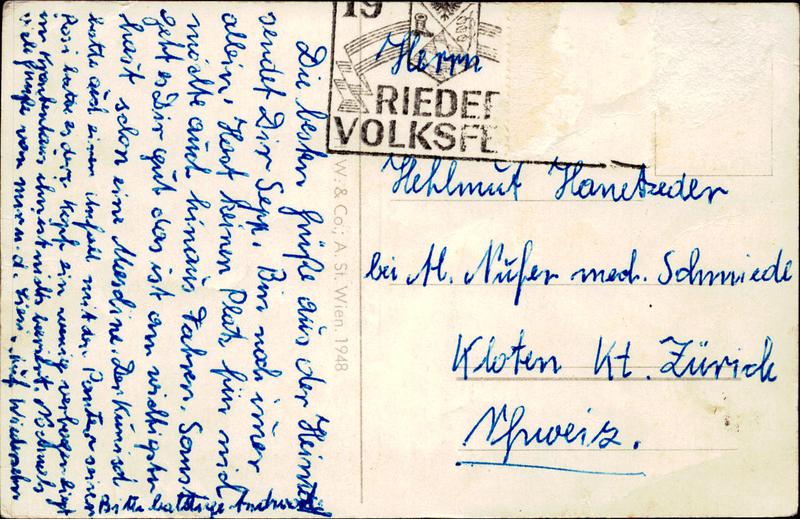 19
RIEDER
VOLKSFE
Herrn
Hehlmut Hanetzeder
bei M. Nufer mech. Schmiede
Kloten Kt. Zürich
Schweiz.
W. & Co.; A. St. Wien. 1948
Die besten Grüße aus der Heimat
sendet Dir Sepp. Bin noch imer
allein. Hast keinen Platz für mich
möchte auch hinaus Fahren. Sonst
geht es Dir gut das ist am wichtigsten
hast schon eine Maschine. Der
hatte auch einen Unfall mit der seiner
Rosi hat es den Kopf ein wenig verbogen liegt
im Krankenhaus ihm ist nichts passiert. Nochmals
die Grüße von mir u. d. auf Wiedersehn
Bitte baldige Andwort